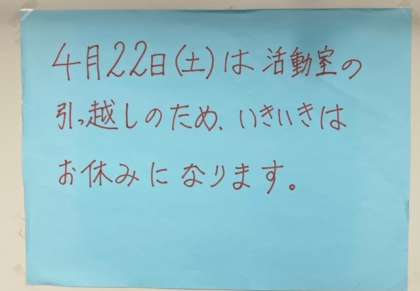 4月22日(土)は活動室の
引っ越しのため、いきいきは
お休みになります。